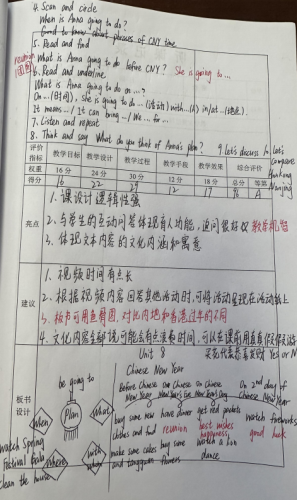 4. Scan and circle
When is Anna going to do?
Good to know about phrases of CNY time
5. Read and find
What is Anna going to do before CNY? She is going to ...
reunion
团圆
6. Read and underline
What is Anna going to do on ...?
On ...(时间), she is going to do ...(活动) with...(人) in/at ...(地点).
It means .../ It can bring .../ We ... for ...
7. Listen and repeat
8. Think and say What do you think of Anna's plan? 9. Let's discuss
Let's
compare
Nanjing
评价指标 教学目标 教学设计 教学过程 教学手段 教学效果 综合评价
权重 16分 24分 30分 12分 18分 总分 等第
得分 16 22 29 12 17 96 A
亮点
1. 课设计逻辑性强
2. 与学生的互动问答体现育人功能,追问很好
3. 体现文本内容的文化内涵和寓意
建议
1. 视频时间有点长
2. 根据视频内容回答其他活动时,可将活动呈现在活动轴上
3. 板书可用鱼骨图,对比内地和香港过年的不同
4. 文化内容全部说可能会有点浪费时间,可以在课前用
Yes or No
板书设计
Unit 8
Chinese New Year
be going to
Plan
When
What
where
with whom
Before Chinese New Year
On Chinese New Year's Eve
On Chinese New Year's Day
On 2nd day of Chinese New Year
buy some new clothes and food
have dinner
get red packets
watch fireworks
reunion
best wishes
happiness
good luck
make some cakes and tangyuan
buy some flowers
watch a lion dance
watch Spring Festival Gala
clean the house